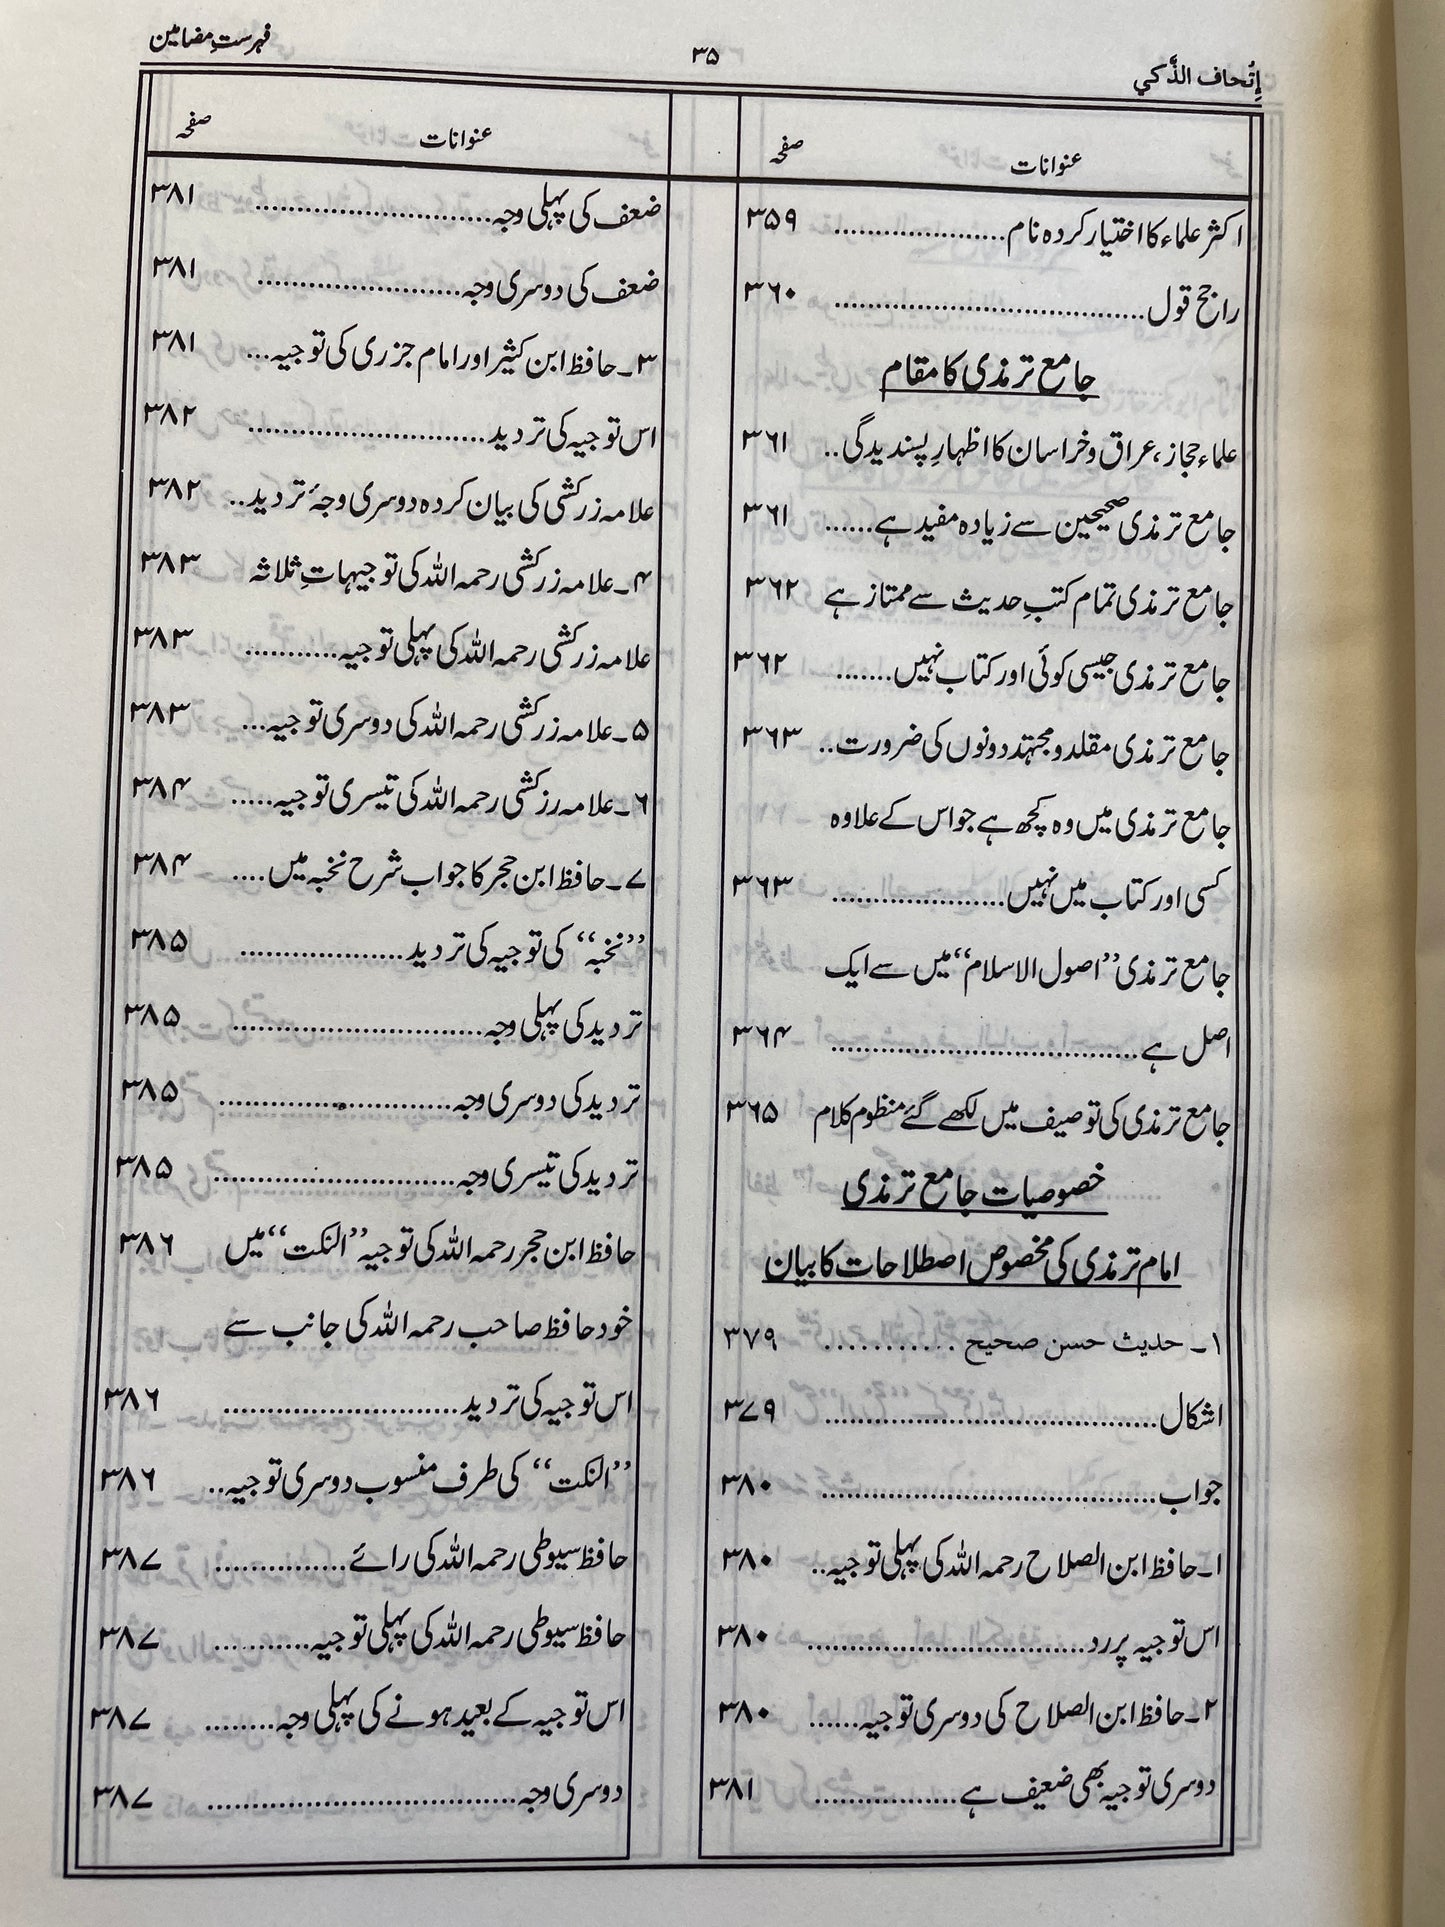 إتُحاف الذَّكي
۳۵
فہرستِ مضامین
عنوانات صفحہ
اکثر علماء کا اختیار کردہ نام..................... ۳۵۹
راجح قول...................................... ۳۶۰
جامع ترمذی کا مقام
علماء حجاز، عراق و خراسان کا اظہارِ پسندیدگی.. ۳۶۱
جامع ترمذی صحیحین سے زیادہ مفید ہے...... ۳۶۱
جامع ترمذی تمام کتبِ حدیث سے ممتاز ہے ۳۶۲
جامع ترمذی جیسی کوئی اور کتاب نہیں....... ۳۶۲
جامع ترمذی مقلد و مجتہد دونوں کی ضرورت.. ۳۶۳
جامع ترمذی میں وہ کچھ ہے جو اس کے علاوہ
کسی اور کتاب میں نہیں..................... ۳۶۳
جامع ترمذی ’’اصول الاسلام‘‘ میں سے ایک
اصل ہے...................................... ۳۶۴
جامع ترمذی کی توصیف میں لکھے گئے منظوم کلام ۳۶۵
خصوصیات جامع ترمذی
امام ترمذی کی مخصوص اصطلاحات کا بیان
۱۔ حدیث حسن صحیح ........... ۳۷۹
اشکال......................................... ۳۷۹
جواب......................................... ۳۸۰
۱۔ حافظ ابن الصلاح رحمہ اللہ کی پہلی توجیہ.. ۳۸۰
اس توجیہ پر رد.................................. ۳۸۰
۲۔ حافظ ابن الصلاح کی دوسری توجیہ...... ۳۸۰
دوسری توجیہ بھی ضعیف ہے................. ۳۸۱
عنوانات صفحہ
ضعف کی پہلی وجہ............................. ۳۸۱
ضعف کی دوسری وجہ......................... ۳۸۱
۳۔ حافظ ابن کثیر اور امام جزری کی توجیہ... ۳۸۱
اس توجیہ کی تردید............................. ۳۸۲
علامہ زرکشی کی بیان کردہ دوسری وجۂ تردید.. ۳۸۲
۴۔ علامہ زرکشی رحمہ اللہ کی توجیہاتِ ثلاثہ ۳۸۳
علامہ زرکشی رحمہ اللہ کی پہلی توجیہ........... ۳۸۳
۵۔ علامہ زرکشی رحمہ اللہ کی دوسری توجیہ... ۳۸۳
۶۔ علامہ زرکشی رحمہ اللہ کی تیسری توجیہ..... ۳۸۴
۷۔ حافظ ابن حجر کا جواب شرح نخبہ میں.... ۳۸۴
’’نخبہ‘‘ کی توجیہ کی تردید.................... ۳۸۵
تردید کی پہلی وجہ............................... ۳۸۵
تردید کی دوسری وجہ............................. ۳۸۵
تردید کی تیسری وجہ............................. ۳۸۵
حافظ ابن حجر رحمہ اللہ کی توجیہ ’’النکت‘‘ میں ۳۸۶
خود حافظ صاحب رحمہ اللہ کی جانب سے
اس توجیہ کی تردید............................. ۳۸۶
’’النکت‘‘ کی طرف منسوب دوسری توجیہ.. ۳۸۶
حافظ سیوطی رحمہ اللہ کی رائے................ ۳۸۷
حافظ سیوطی رحمہ اللہ کی پہلی توجیہ............ ۳۸۷
اس توجیہ کے بعید ہونے کی پہلی وجہ......... ۳۸۷
دوسری وجہ...................................... ۳۸۷